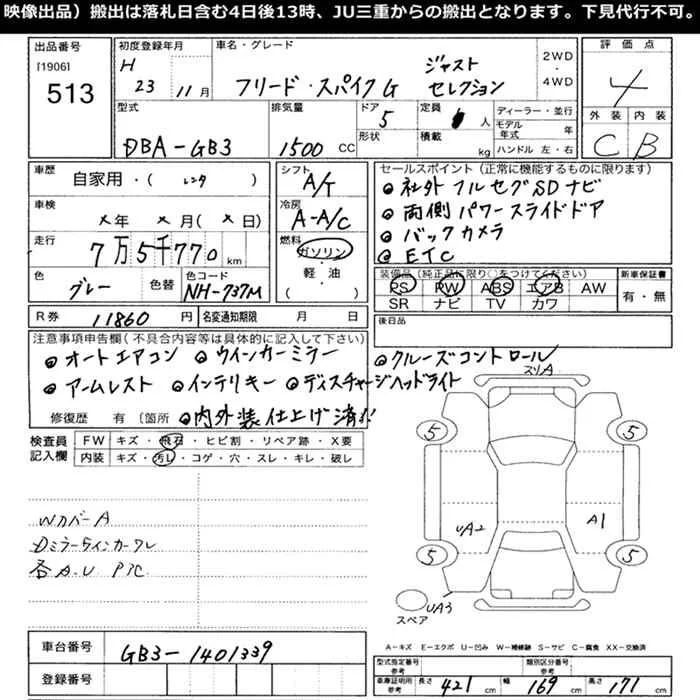 映像出品）搬出は落札日含む4日後13時、JU三重からの搬出となります。下見代行不可。
出品番号
[1906]
513
初度登録年月
H 23 年 11月
車名・グレード
フリード・スパイクG ジャスト セレクション
2WD・4WD
評価点
4
外装 内装
C B
型式
DBA-GB3
排気量
1500 CC
ドア 5
形状
定員 人
積載 kg
ディーラー・並行
モデル年式 年
ハンドル 左・右
車歴
自家用・( レンタ )
車検
×年 ×月(×日)
走行
7万5千770 km
色
グレー
色替
色コード
NH-737M
シフト
A/T
冷房
A-A/C
燃料
ガソリン・軽油
セールスポイント(正常に機能するものに限ります)
◎社外フルセグSDナビ
◎両側パワースライドドア
◎バックカメラ
◎ETC
装備品(純正品に限り○をつけてください)
PS PW ABS エアB AW
SR ナビ TV カワ
新車保証書
有・無
R券 11860円
名変通知期限 月 日
後日品
注意事項申告欄(不具合内容等は具体的に記入して下さい)
◎オートエアコン ◎ウインカーミラー ◎クルーズコントロール
◎アームレスト ◎インテリキー ◎ディスチャージヘッドライト
修復歴 有(箇所 ◎内外装仕上げ済!!
検査員記入欄
FW キズ・飛石・ヒビ割・リペア跡・X要
内装 キズ・汚レ・コゲ・穴・スレ・キレ・破レ
WカバーA
Dミラーウインカーワレ
各A.U P.C
スリA
5 5
UA2 A1
5 5
スペア UA3
A－キズ E－エクボ U－凹み W－補修跡 S－サビ C－腐食 XX－交換済
車台番号
GB3-1401339
登録番号
型式指定番号 参考
類別区分番号 参考
車庫証明用 参考
長さ 421 cm 幅 169 cm 高さ 171 cm